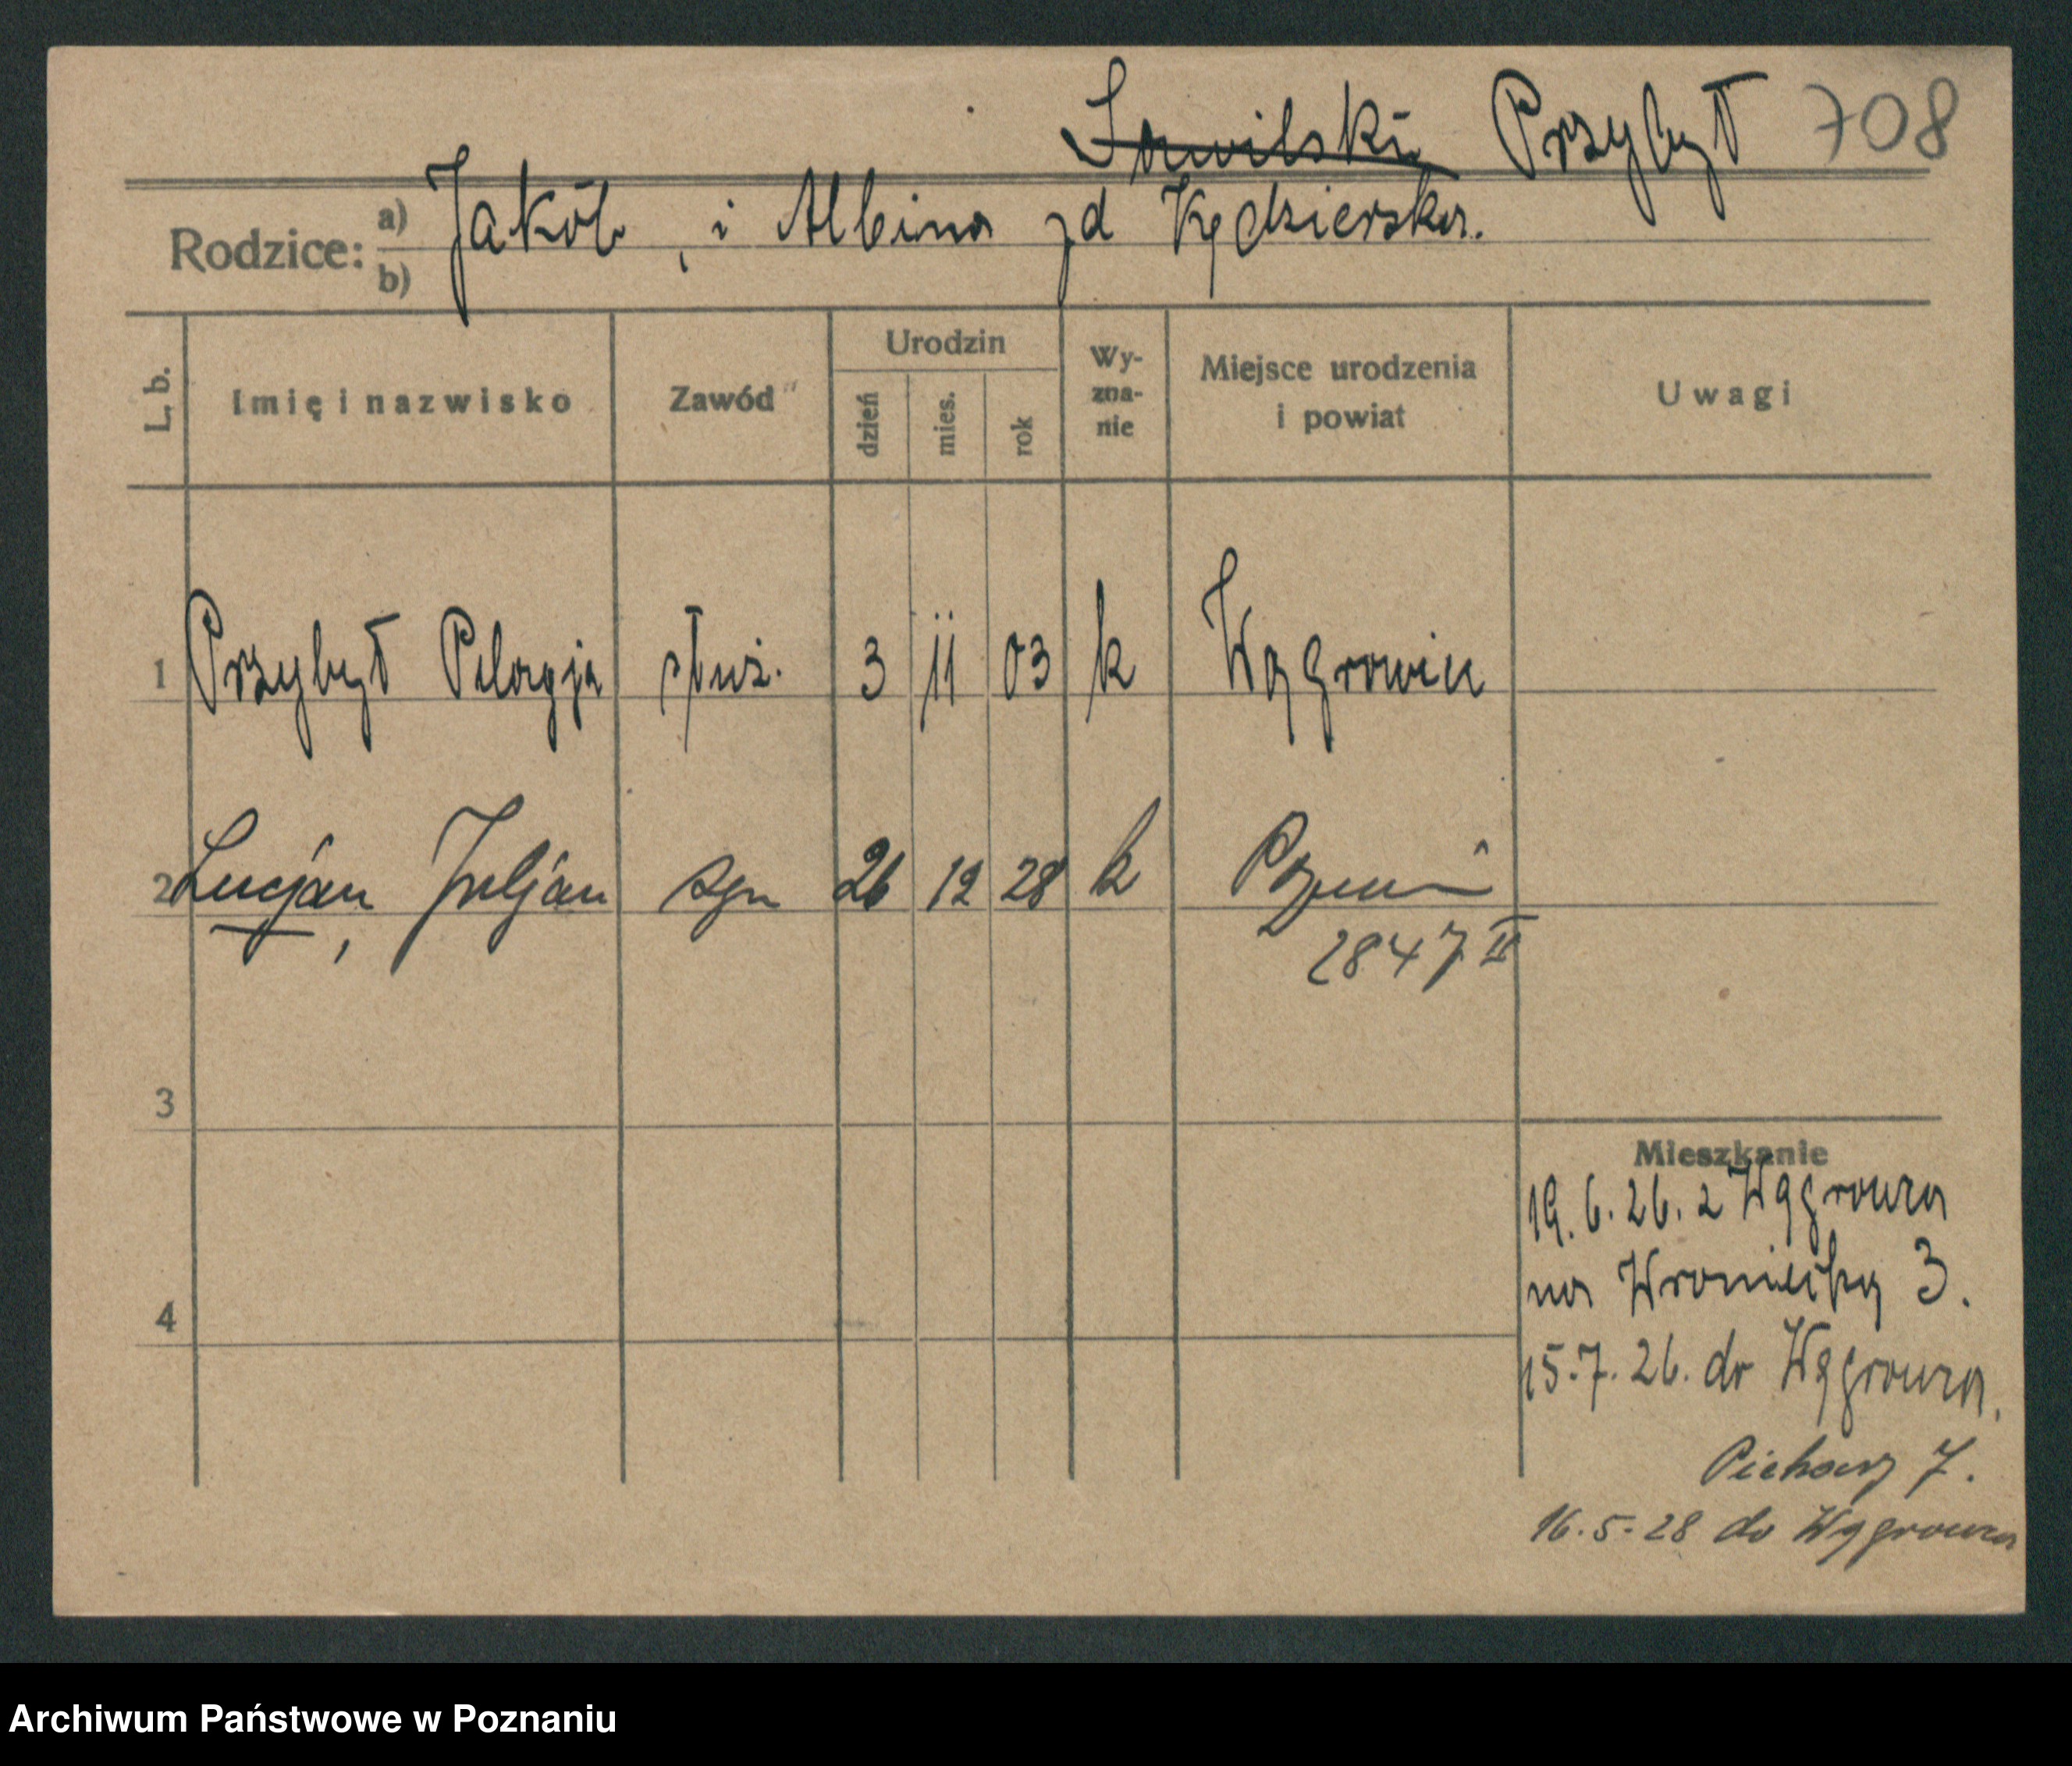 Przybył 708
Rodzice: a) Jakób, i Albina zd Kędzierska.
b)
L. b. Imię i nazwisko Zawód Urodzin dzień mies. rok Wy-zna-nie Miejsce urodzenia i powiat Uwagi
1 Przybył Pelagja służ. 3 11 03 k Wągrowiec
2 Lucjan, Juljan syn 26 12 28 k Poznań
2847 II
3
Mieszkanie
19.6.26. z Wągrowca
na Wroniecką 3.
4
15.7.26. do Wągrowca.
Piekary 7.
16.5-28 do Wągrowca
Archiwum Państwowe w Poznaniu